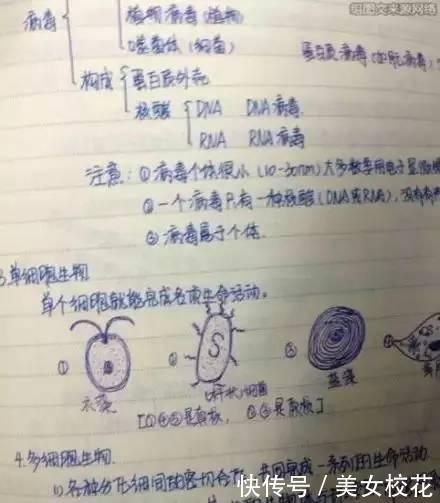 组图文来源网络
病毒
植物病毒(植物)
噬菌体(细菌)
构成
蛋白质外壳
核酸
DNA DNA病毒
RNA RNA病毒
蛋白质病毒
注意: ①病毒个体很小(10-30nm)大多数要用电子显微
②一个病毒只有一种核酸(DNA或RNA),没有
③病毒属于个体.
3.单细胞生物
单个细胞就能完成各项生命活动。
① ② S ③
衣藻 杆状细菌 蓝藻
4.多细胞生物.
1)各种分化细胞间的密切合作,共同完成一系列的生命活动
快传号/美女校花